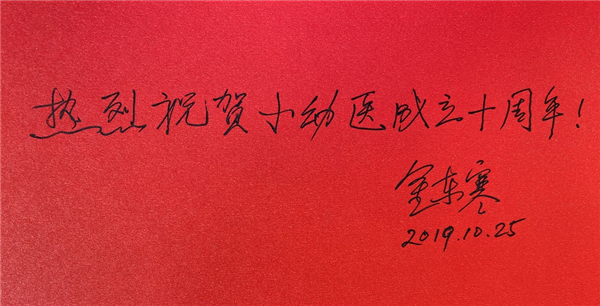 热烈祝贺小动医成立十周年!
金东寒
2019.10.25